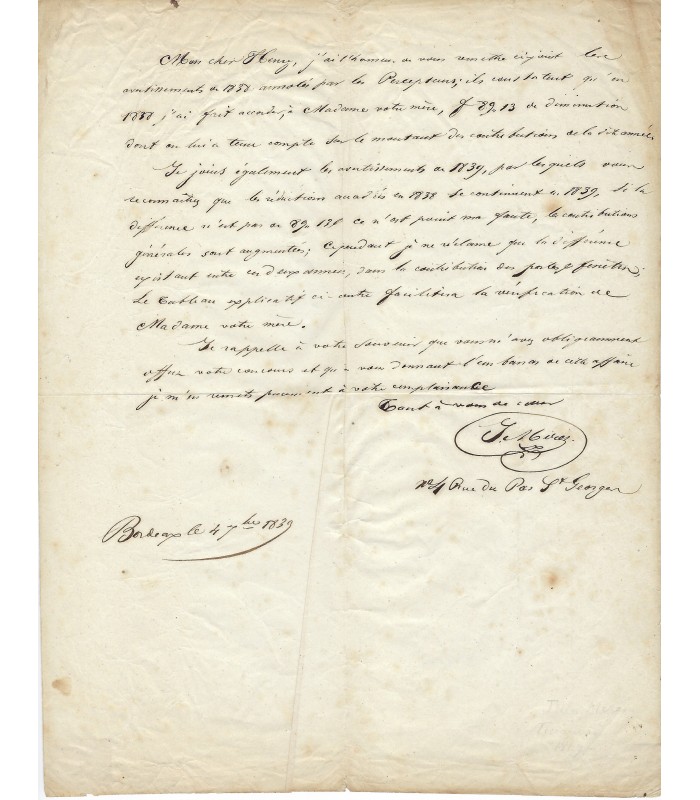 Mon cher Henry, j'ai l'honneur de vous remettre ci joint les
avertissements de 1838 annotés par les Percepteurs; ils constatent qu'en
1838 j'ai fait accorder, à Madame votre mère, f 89,13 de diminution
dont on lui a tenu compte sur le montant des contributions de la dite année
Je joins également les avertissements de 1839, par lesquels vous
reconnaîtrez que les réductions accordées en 1838 se continuent en 1839, si la
différence n'est pas de 89, 13 f ce n'est point ma faute, les contributions
générales sont augmentées; Cependant je ne réclame que la différence
existant entre ces deux années, dans la contribution des portes & fenêtres;
Le Tableau explicatif ci-contre facilitera la vérification de
Madame votre mère.
Je rappelle à votre souvenir que vous m'avez obligeamment
offert votre concours et qu'en vous donnant l'embarras de cette affaire
je m'en remets purement à votre complaisance
Tout à vous de cœur
J. Mirès
N° 4 Rue du Pas St Georges
Bordeaux le 4 7bre 1839